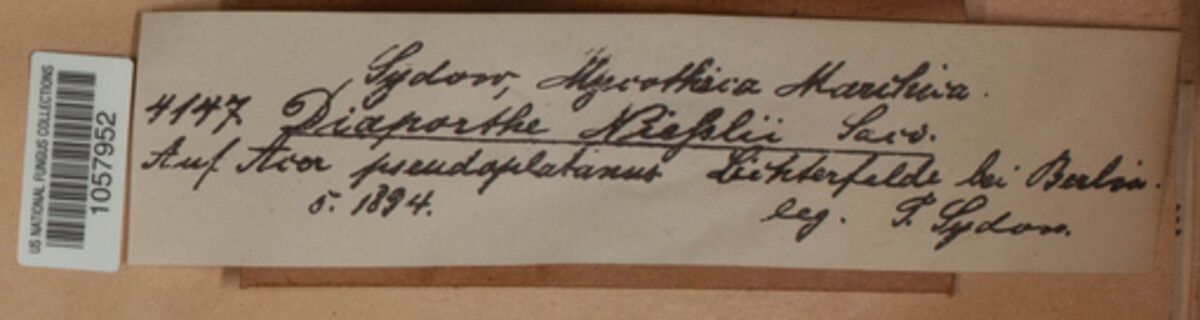 US NATIONAL FUNGUS COLLECTIONS
1057952
Sydow, Mycotheca Marchica.
4147 Diaporthe Niesslii Sacc.
Auf Acer pseudoplatanus Lichterfelde bei Berlin.
5. 1894. leg. P. Sydow.